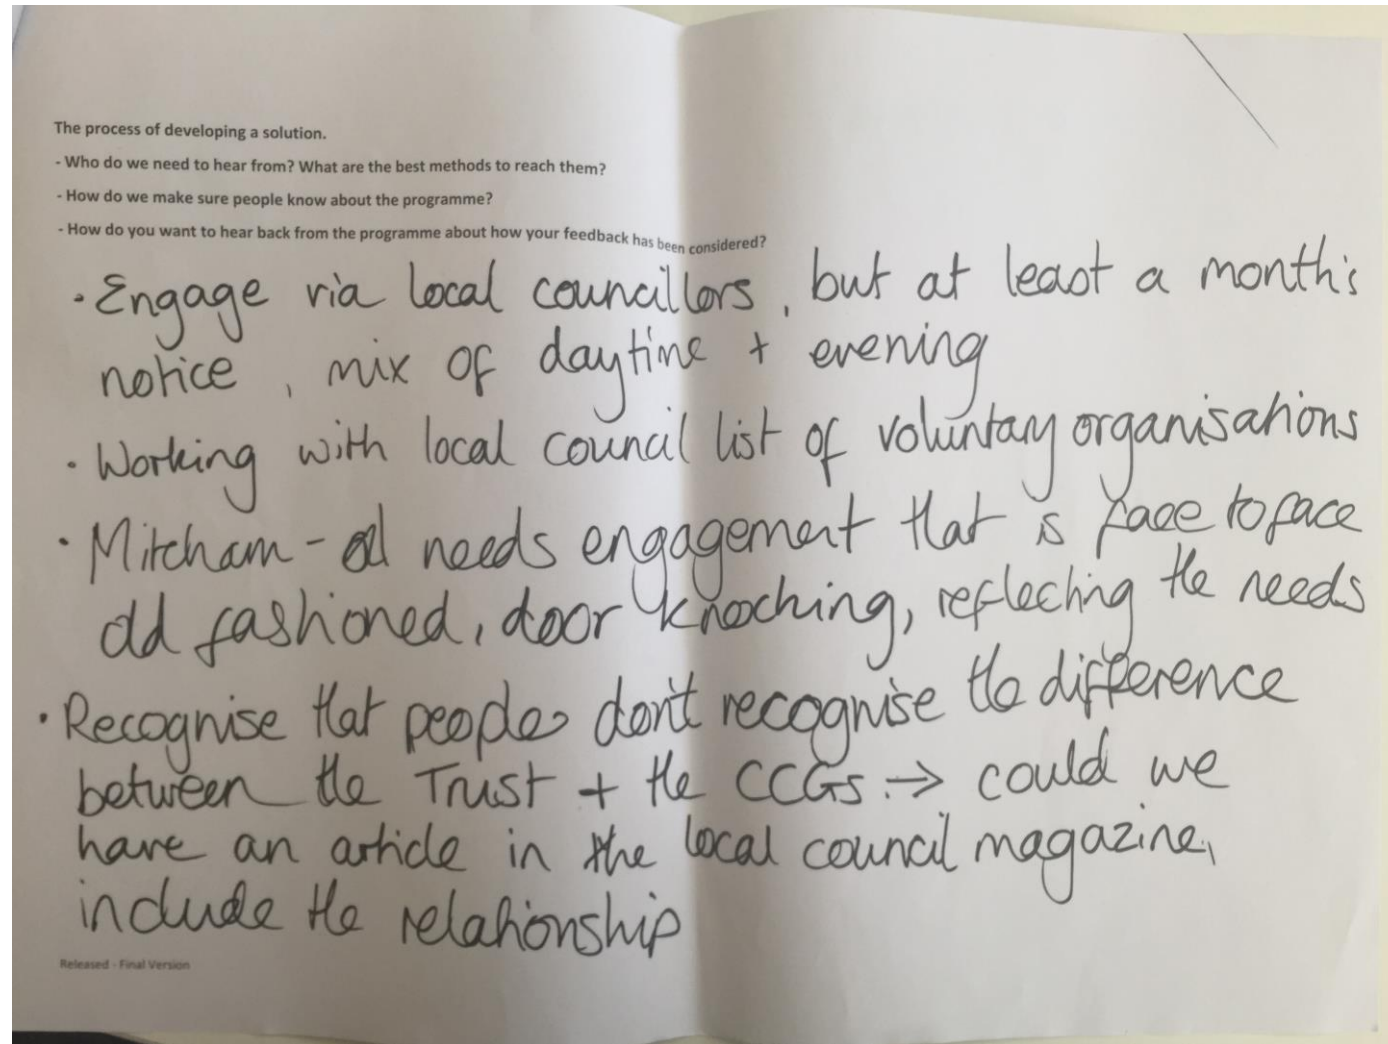 The process of developing a solution.
- Who do we need to hear from? What are the best methods to reach them?
- How do we make sure people know about the programme?
- How do you want to hear back from the programme about how your feedback has been considered?
• Engage via local councillors, but at least a month's
notice, mix of daytime + evening
• Working with local council list of voluntary organisations
• Mitcham - needs engagement that is face to face
old fashioned, door knocking, reflecting the needs
• Recognise that people don't recognise the difference
between the Trust + the CCGs → could we
have an article in the local council magazine,
include the relationship
Released - Final Version